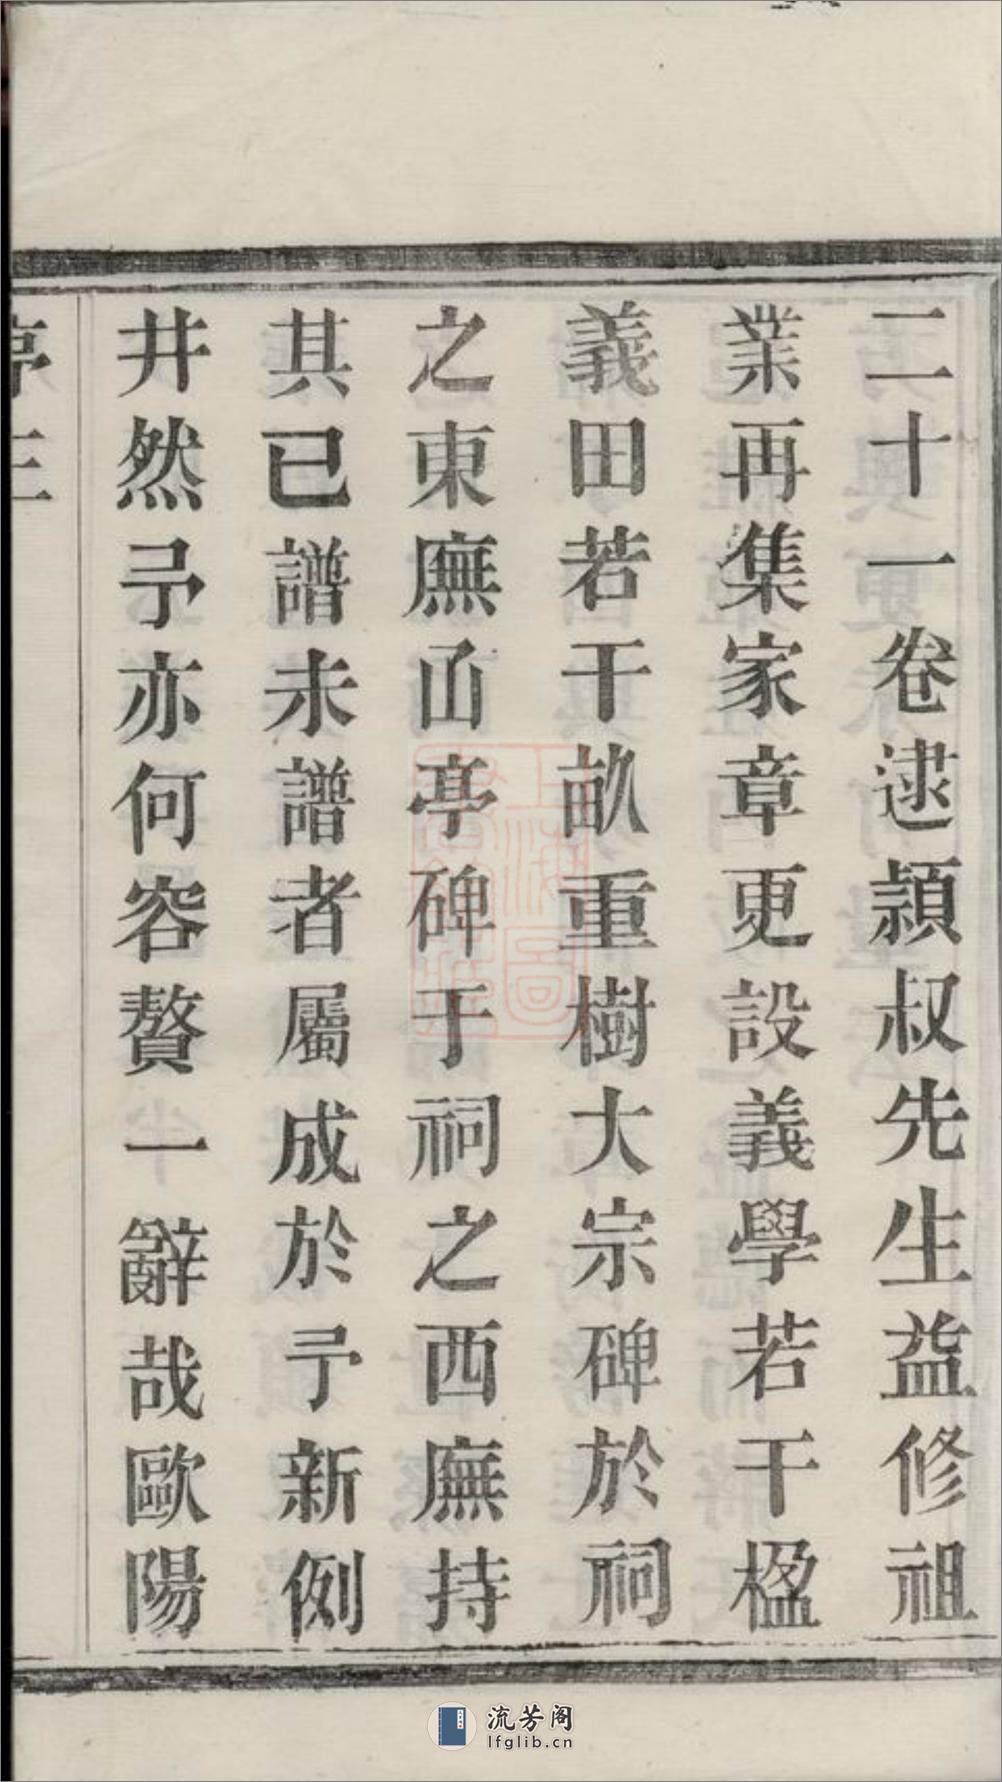 二十一卷逮潁叔先生益修祖
業再集家章更設義學若干楹
義田若干畝重樹大宗碑於祠
之東廡函亭碑于祠之西廡持
其已譜未譜者屬成於予新例
井然予亦何容贅一辭哉歐陽
序 三
上海圖書館藏
流芳阁
lfglib.cn